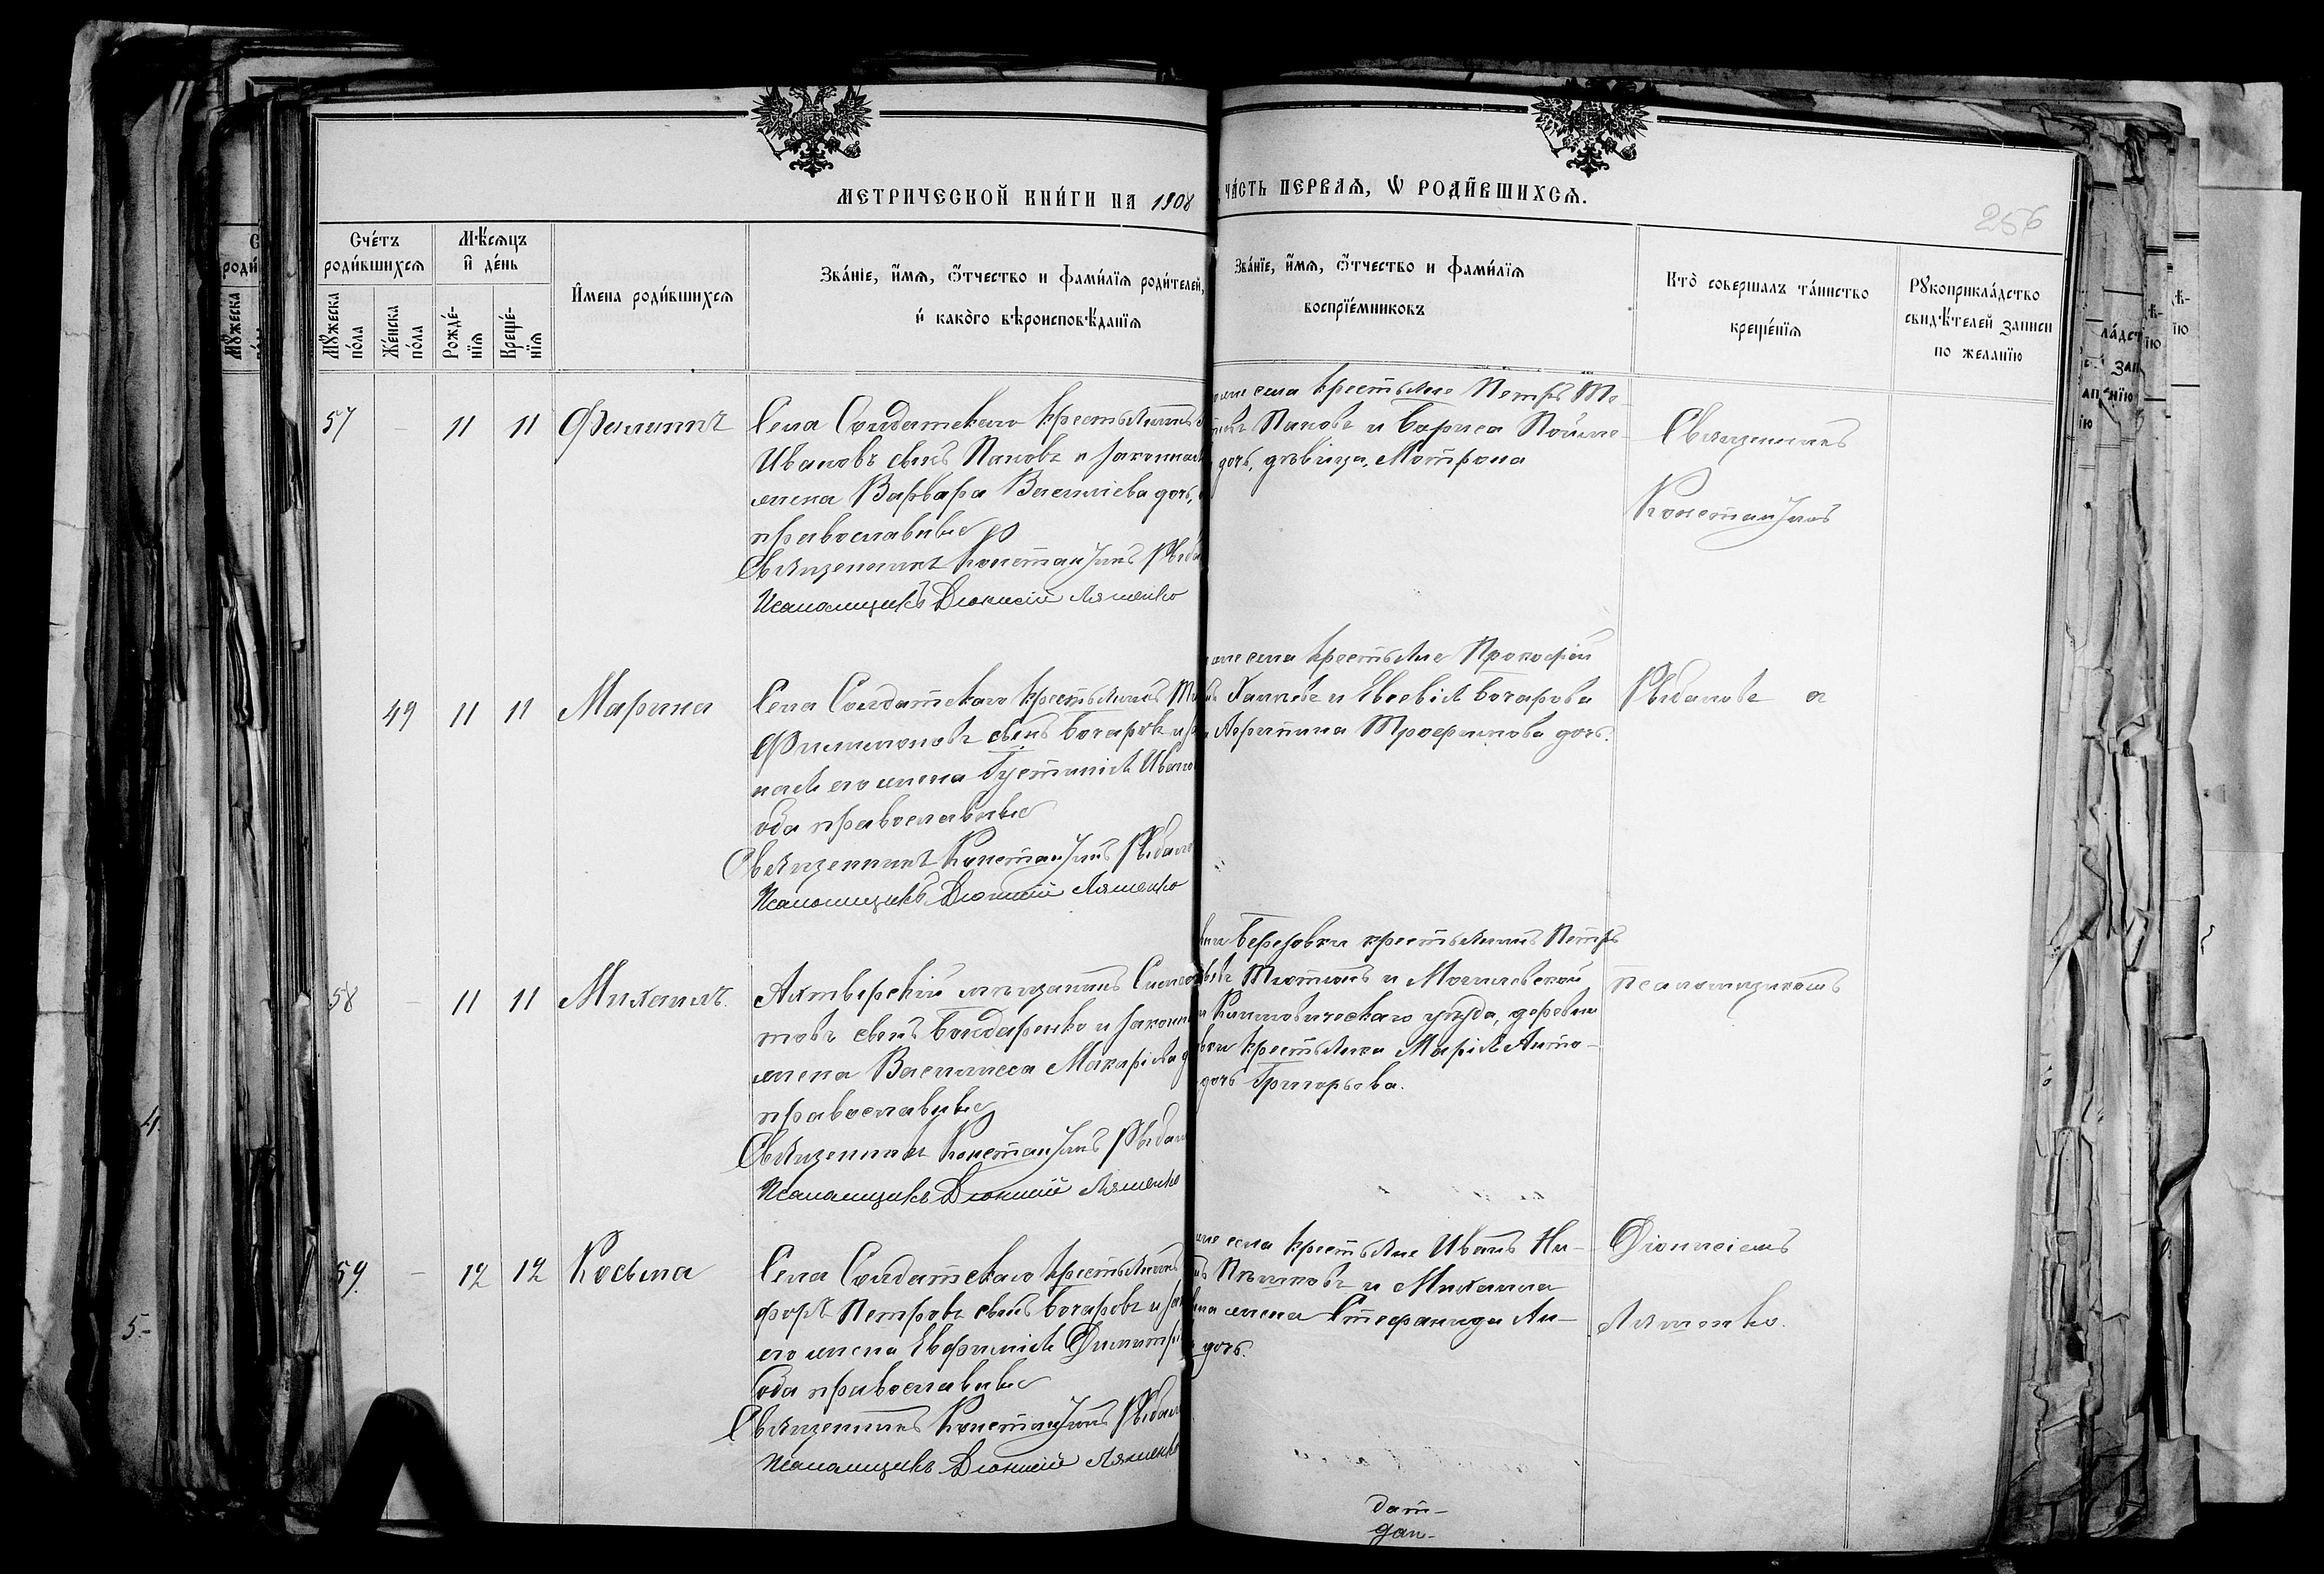 МЕТРИЧЕСКОЙ КНИ́ГИ НА 1908
ЧА́СТЬ ПЕРВАѦ, Ѡ РОДИ́ВШИХСѦ.
256
Сче́тъ родившихсѧ
Мѣ́сѧцъ и де́нь
Мꙋжеска по́ла
Же́нска по́ла
Рожде́нїѧ
Креще́нїѧ
И́мена роди́вшихсѧ
Зва́нїе, и́мѧ, ѻ́тчество и фами́лїѧ роди́телей,
и како́го вѣроисповѣ́данїѧ
Зва́нїе, и́мѧ, ѻ́тчество и фами́лїѧ
воспрїе́мниковъ
Кто̀ совершалъ та́инство
креще́нїѧ
Рꙋкоприкла́дство
свидѣ́телей записи
по желанїю
57 – 11 11 Филиппъ
Села Солдатскаго крестьянинъ
Ивановъ сынъ Пановъ и законная
жена Варвара Васильева дочь,
православные
Священникъ Константинъ Рыба
Псаломщикъ Дионисій Ляшенко
села крестьяне Петръ
Пановъ и
дочь, дѣвица, Мотрона
Священникъ
Константинъ
49 11 11 Марина
Села Солдатскаго крестьянинъ
Филимоновъ сынъ Бочаровъ и
ная его жена Іустинія Ивано
оба православные
Священникъ Константинъ Рыбало
Псаломщикъ Дионисій Ляшенко
села крестьяне Прокофій
и Евсевія Бочарова
Трофимова дочь.
Рыбаловъ
58 – 11 11 Михаилъ.
Ахтырскій мѣщанинъ
товъ сынъ Бондаренко и законн
жена Василисса Макаріева
православные
Священникъ Константинъ Рыбал
Псаломщикъ Дионисій Ляшенко
Березовки крестьянинъ Петръ
и Могилевской
Климовическаго уѣзда, деревни
крестьянка Марія Анто-
дочь Григорьева.
псаломщикомъ
59. – 12 12 Косьма
Села Солдатскаго крестьянинъ
форъ Петровъ сынъ Бочаровъ и за
его жена Евфимія Димитрі
Оба православные
Священникъ Константинъ Рыбал
Псаломщикъ Дионисій Ляшенко
села крестьяне Иванъ Ни-
и Михаила
жена Стефанида Ан-
дочь.
Діонисіемъ
Ляшенко.